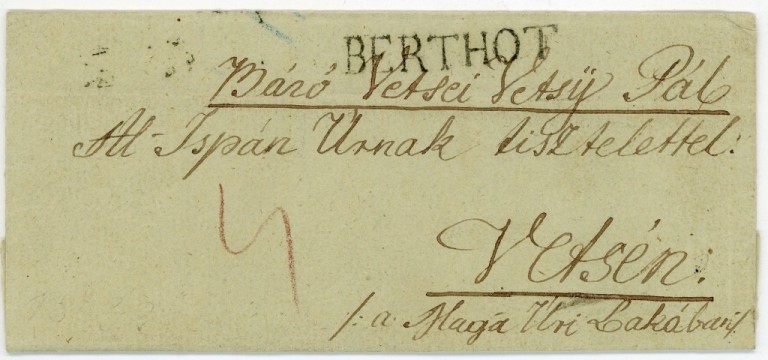 BERTHOT
Báró Vetsei Vetsÿ Pál
Al-Ispán Úrnak tisztelettel:
4
Vetsén.
/: a Maga Úri Lakában :/